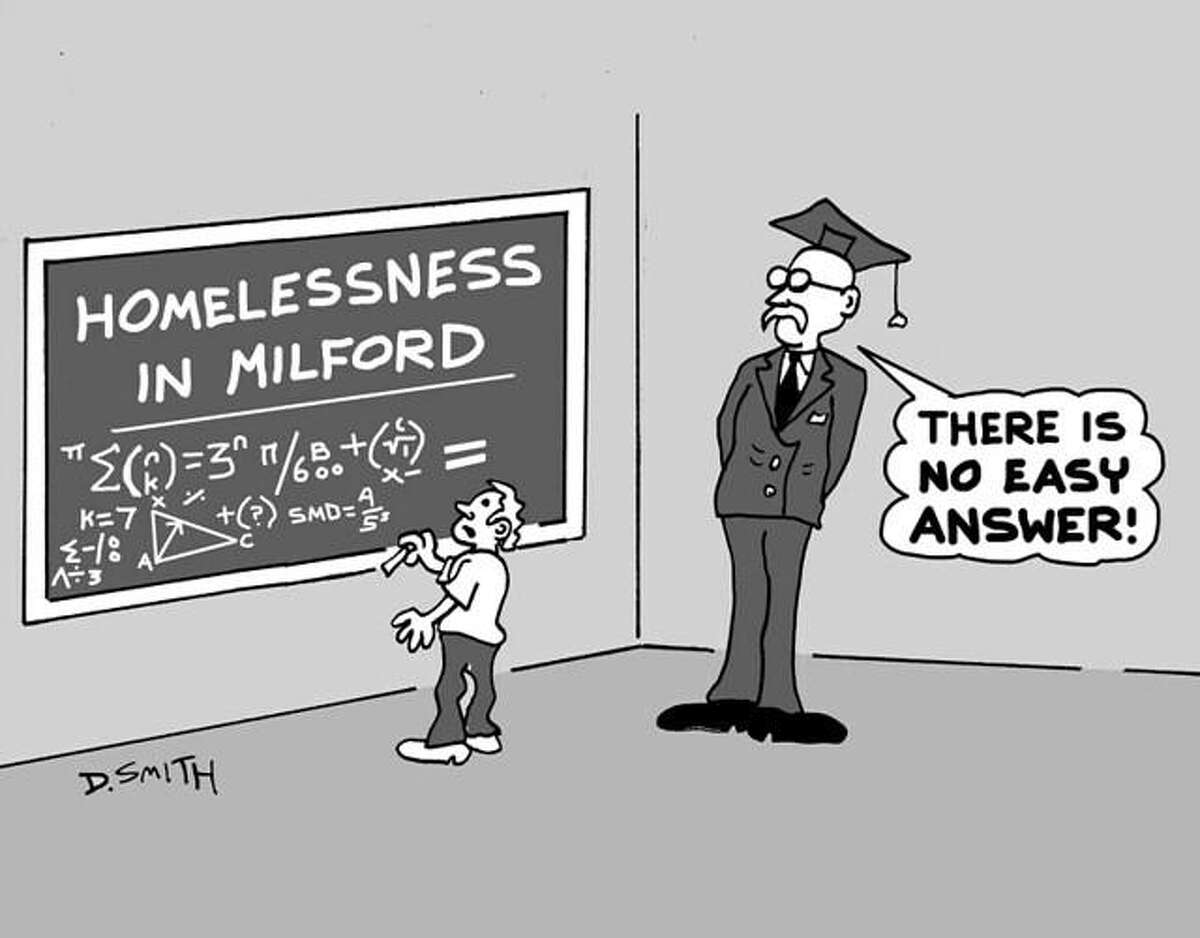 HOMELESSNESS
IN MILFORD
π Σ(n k) = 3ⁿ π/6 B 00 + (√1) x- =
K=7
X
%
+(?)
SMD = A/5³
A
C
Λ÷3
THERE IS
NO EASY
ANSWER!
D. SMITH